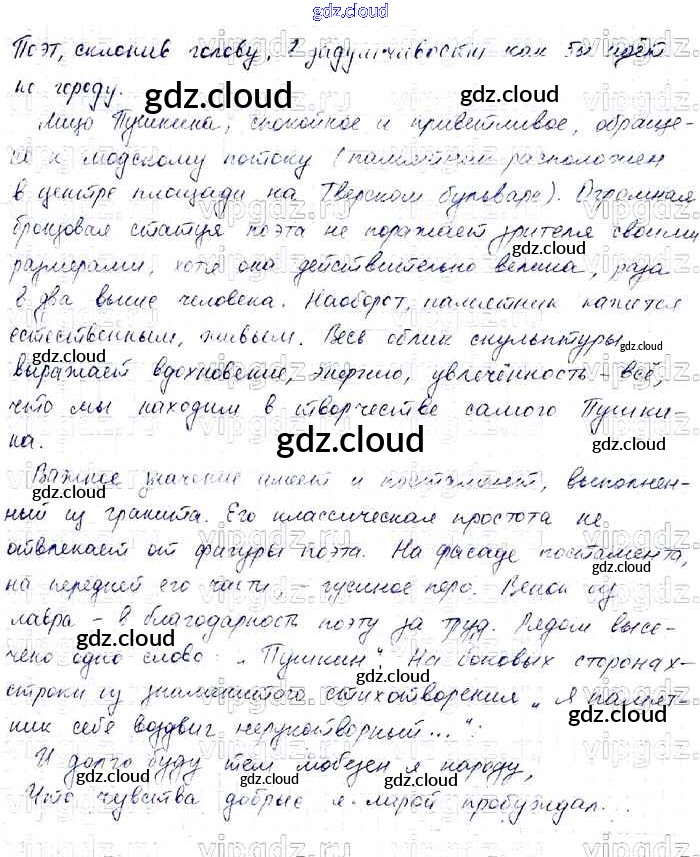 gdz.cloud
Поэт, склонив голову, в задумчивости как бы идёт
по городу.
Лицо Пушкина, спокойное и приветливое, обраще-
но к людскому потоку (памятник расположен
в центре площади на Тверском бульваре). Огромная
бронзовая статуя поэта не поражает зрителя своими
размерами, хотя она действительно велика, раза
в два выше человека. Наоборот, памятник кажется
естественным, живым. Весь облик скульптуры
выражает вдохновение, энергию, увлечённость - всё,
что мы находим в творчестве самого Пушки-
на.
Важное значение имеет и постамент, выполнен-
ный из гранита. Его классическая простота не
отвлекает от фигуры поэта. На фасаде постамента,
на передней его части, - гусиное перо. Венок из
лавра - в благодарность поэту за труд. Рядом высе-
чено одно слово: „Пушкин". На боковых сторонах -
строки из знаменитого стихотворения „Я памят-
ник себе воздвиг нерукотворный...":
И долго буду тем любезен я народу,
Что чувства добрые я лирой пробуждал...